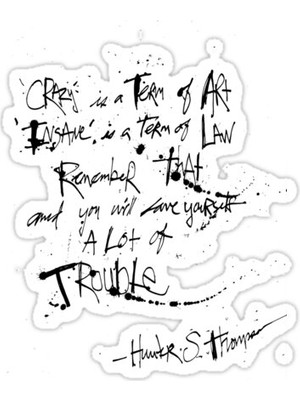 'CRAZY' is a TERM of ART
'INSANE' is a TERM of LAW
Remember THAT
and you will save yourself
A LOT of
TROUBLE
– Hunter S. Thompson